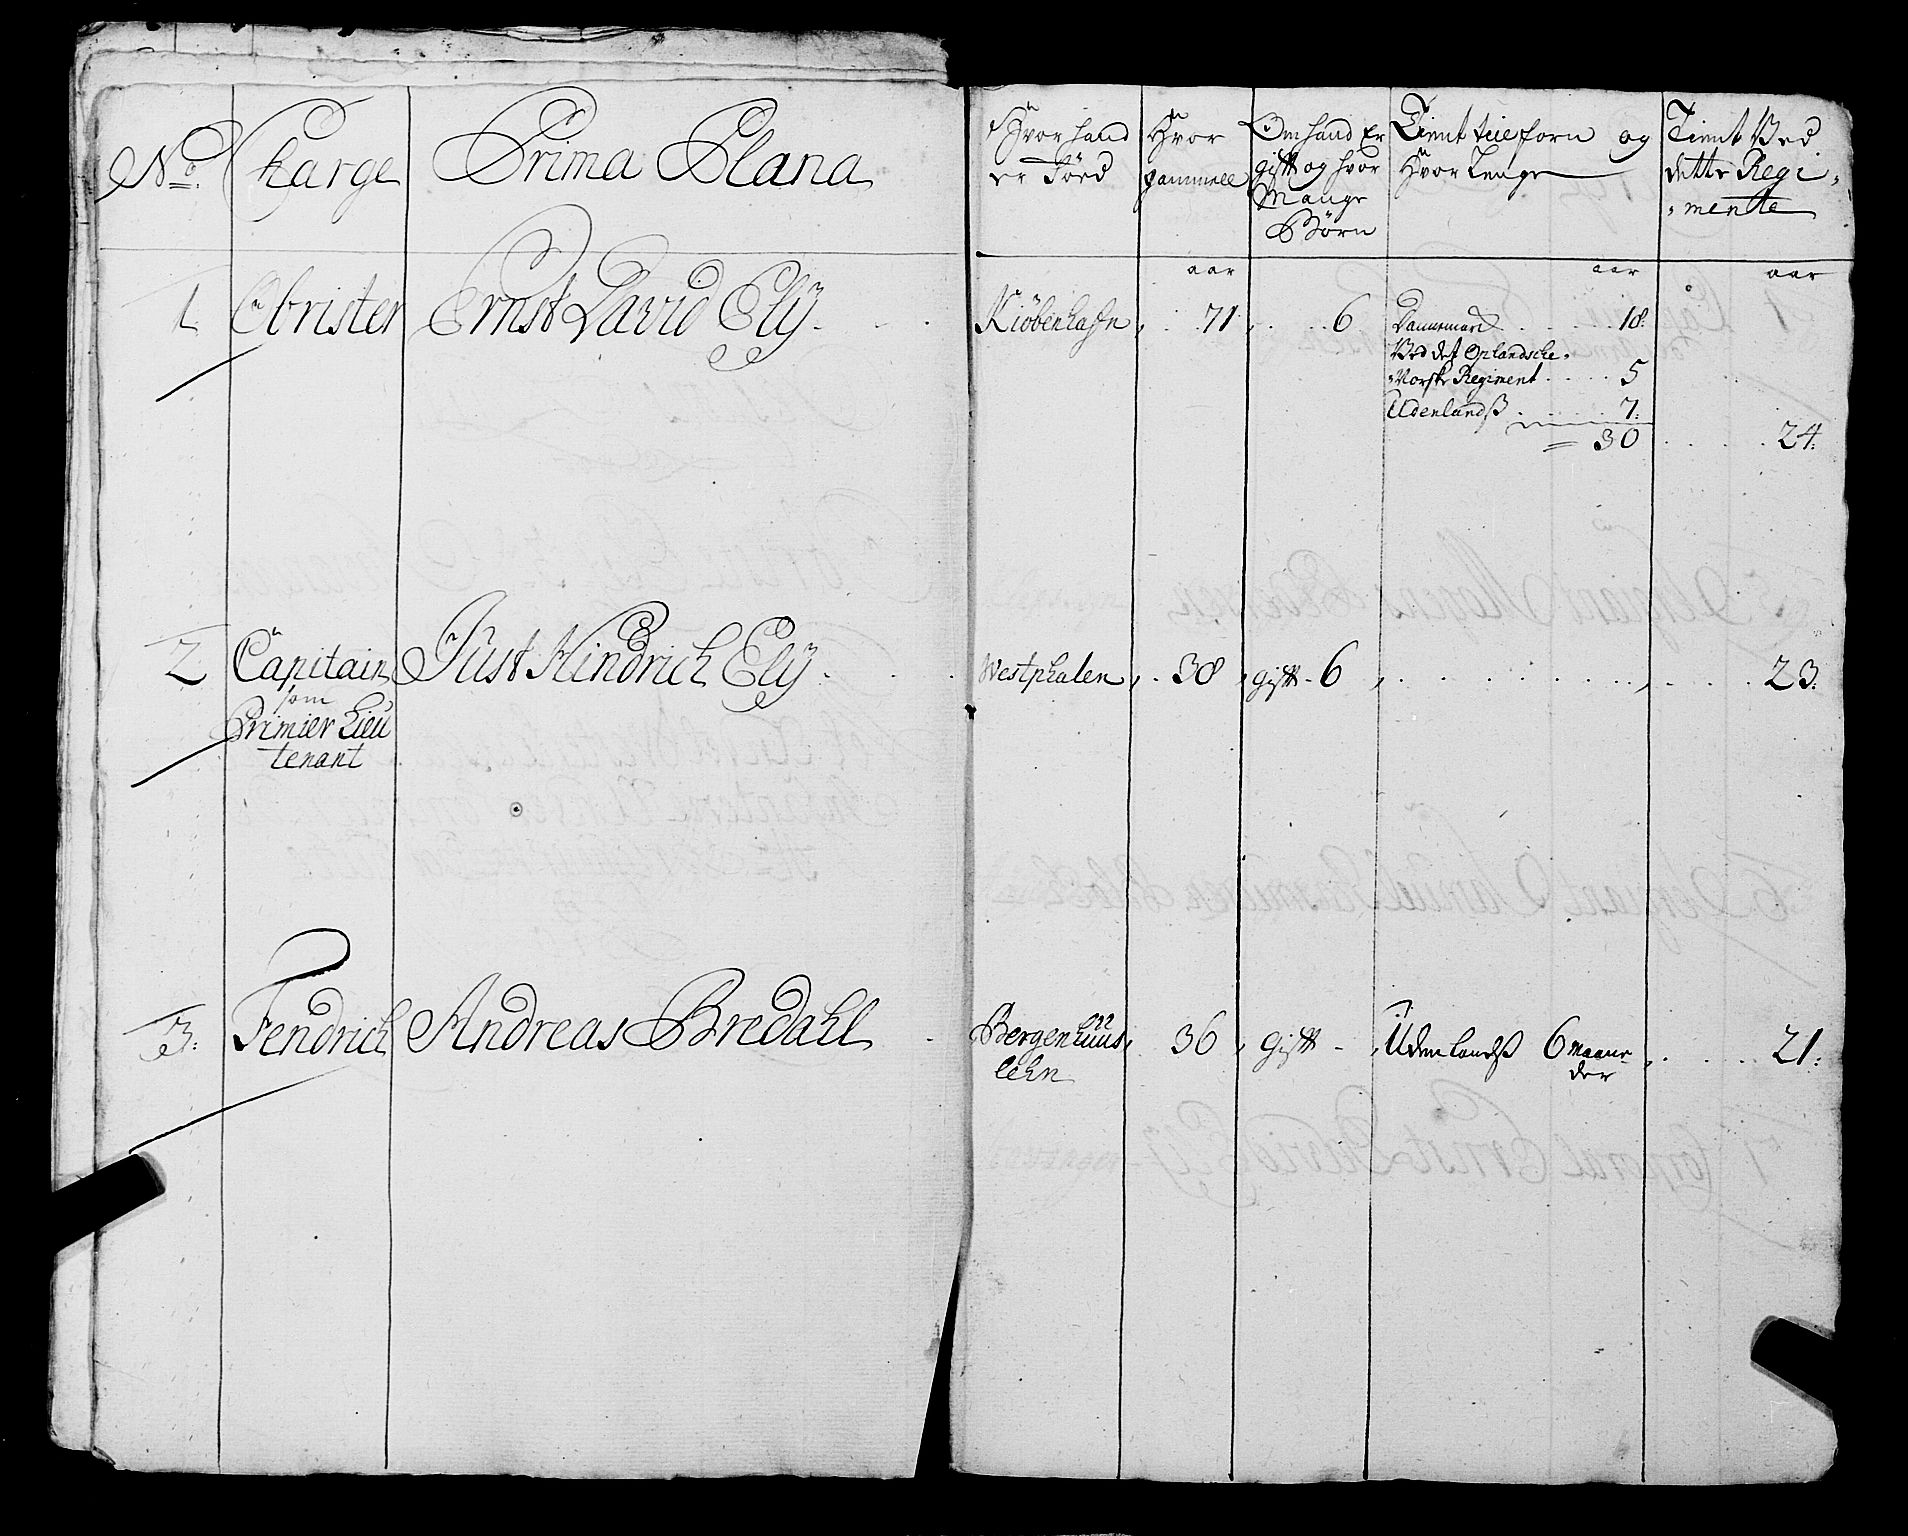 No. Charge Prima Plana
Hvor hand
er Föed
Hvor
gammell
Om hand Er
gift og hvor
Mange
Börn
Tient tilforn og
Hvor Lenge
Tient Ved
dette Regi-
-mente
aar aar aar
1 Obrister Ernst David Elÿ. Kiöbenhaffn, 71. 6 Dannemark 18:
Ved det Oplandsche
Norske Regiment 5
Udenlandß 7:
= 30 24:
2 Capitain Just Hindrich Elÿ. Westphalen, 38, gifft - 6 23:
som
Primier Lieu
tenant
3: Fendrich Andreas Bredahl Bergenhuus, 36, gifft - Udenlandß 6 Maane 21:
lehn der